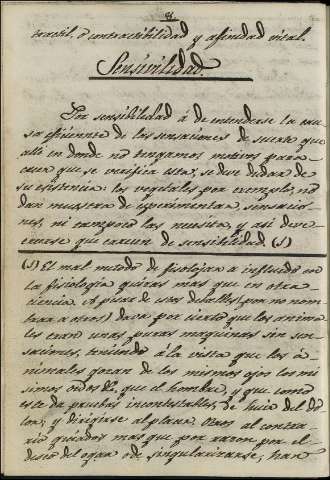 8
tractil. ó contractibilidad y afinidad vital.
Sensivilidad.
Por sensibilidad á de entenderse la cau-
sa eficiente de las sensaciones de suerte que
alli en donde no tengamos motivos para
creer que se verifica esta, se deve dudar de
su esistencia: los vegetales por exemplo, no
dan muestra de esperimentar sensacio-
nes, ni tampoco las necesita, y asi deve
creerse que carecen de sensibilidad. (1)
(1) El mal metodo de filosofar a influido en
la fisiologia quizas mas que en otra
ciencia.
(por no nom-
brar a otros) dava por cierto que los anima
les eran unas puras maquinas sin sen-
saciones, teniendo á la vista que los a-
nimales gozan de los mismos ojos los mi
simos oidos &c. que el hombre, y que como
este da pruebas incontestables, de huir del do
lor, y dirigirse al placer. Otros al contra-
rio guiados mas que por razon por el
deseo del egar o de singularizarse, han